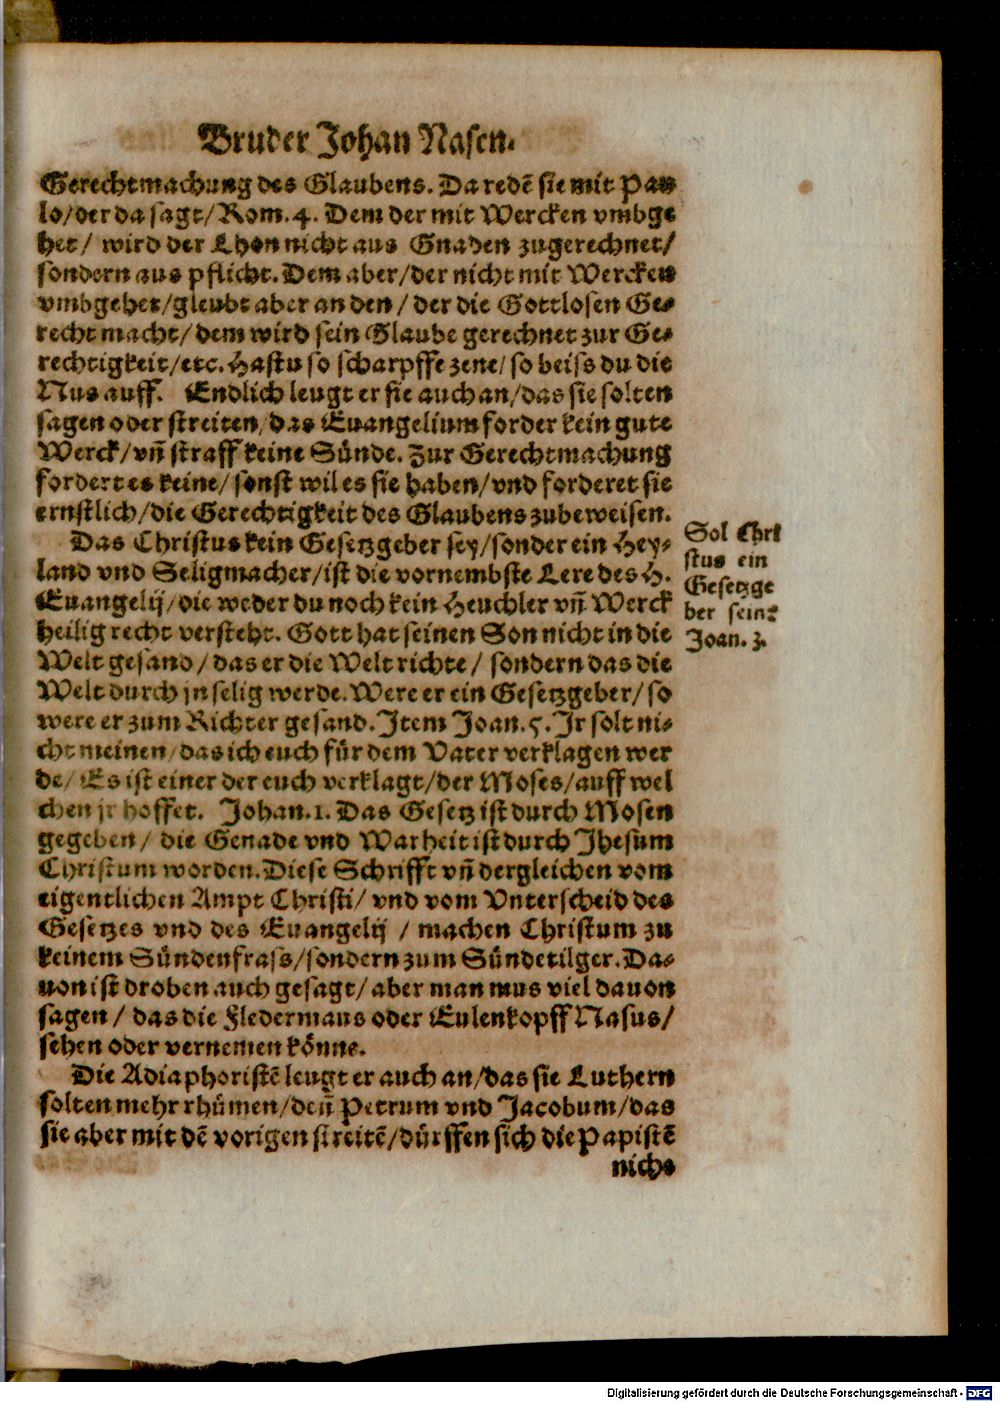 Bruder Johan Nasen.
Gerechtmachung des Glaubens. Da redē sie mit Pau
lo/der da sagt/Rom. 4. Dem der mit Wercken vmbge
het/ wird der Lhon nicht aus Gnaden zugerechnet/
sondern aus pflicht. Dem aber/der nicht mit Wercken
vmbgehet/gleubt aber an den/ der die Gottlosen Ge⸗
recht macht/dem wird sein Glaube gerechnet zur Ge⸗
rechtigkeit/etc. Hastu so scharpffe zene/so beiss du die
Nus auff. Endlich leugt er sie auch an/das sie solten
sagen oder streiten/das Euangelium forder kein gute
Werck/vñ straff keine Sünde. Zur Gerechtmachung
fordert es keine/sonst wil es sie haben/vnd forderet sie
ernstlich/die Gerechtigkeit des Glaubens zubeweisen.
Das Christus kein Gesetzgeber sey/sonder ein Hey⸗
land vnd Seligmacher/ist die vornembste Lere des H.
Euangelij/die weder du noch kein Heuchler vñ Werck
heilig recht versteht. Gott hat seinen Son nicht in die
Welt gesand/das er die Welt richte/ sondern das die
Welt durch jn selig werde. Were er ein Gesetzgeber/so
were er zum Richter gesand. Item Joan. 5. Jr solt ni⸗
cht meinen/das ich euch für dem Vater verklagen wer
de/ Es ist einer der euch verklagt/der Moses/auff wel
chen jr hoffet. Johan. 1. Das Gesetz ist durch Mosen
gegeben/ die Genade vnd Warheit ist durch Jhesum
Christum worden. Diese Schrifft vñ dergleichen vom
eigentlichen Ampt Christi/ vnd vom Vnterscheid des
Gesetzes vnd des Euangelij / machen Christum zu
keinem Sündenfrass/sondern zum Sündetilger. Da⸗
uon ist droben auch gesagt/aber man mus viel dauon
sagen / das die Fledermaus oder Eulenkopff Nasus/
sehen oder vernemen könne.
Die Adiaphoristē leugt er auch an/das sie Luthern
solten mehr rhümen/deñ Petrum vnd Jacobum/das
sie aber mit dē vorigen streitē/dürffen sich die Papistē
nicht
Sol Chri
stus ein
Gesetzge
ber sein?
Joan. 3.
Digitalisierung gefördert durch die Deutsche Forschungsgemeinschaft - DFG